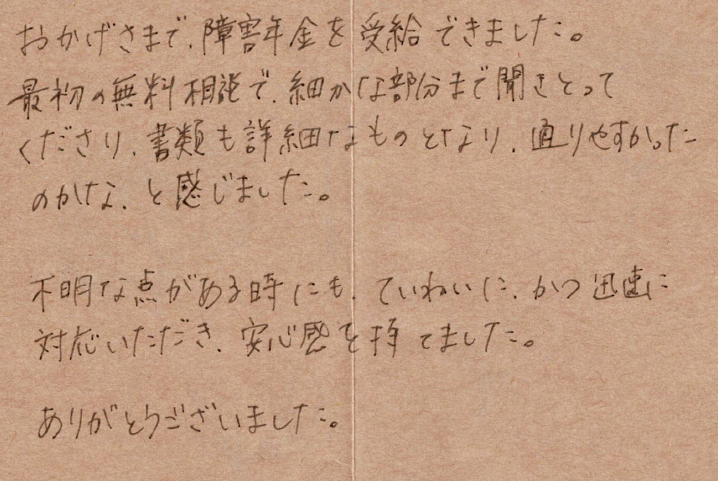 おかげさまで、障害年金を受給できました。
最初の無料相談で、細かな部分まで聞きとって
くださり、書類も詳細なものとなり、通りやすかった
のかな、と感じました。
不明な点がある時にも、ていねいに、かつ迅速に
対応いただき、安心感を持てました。
ありがとうございました。